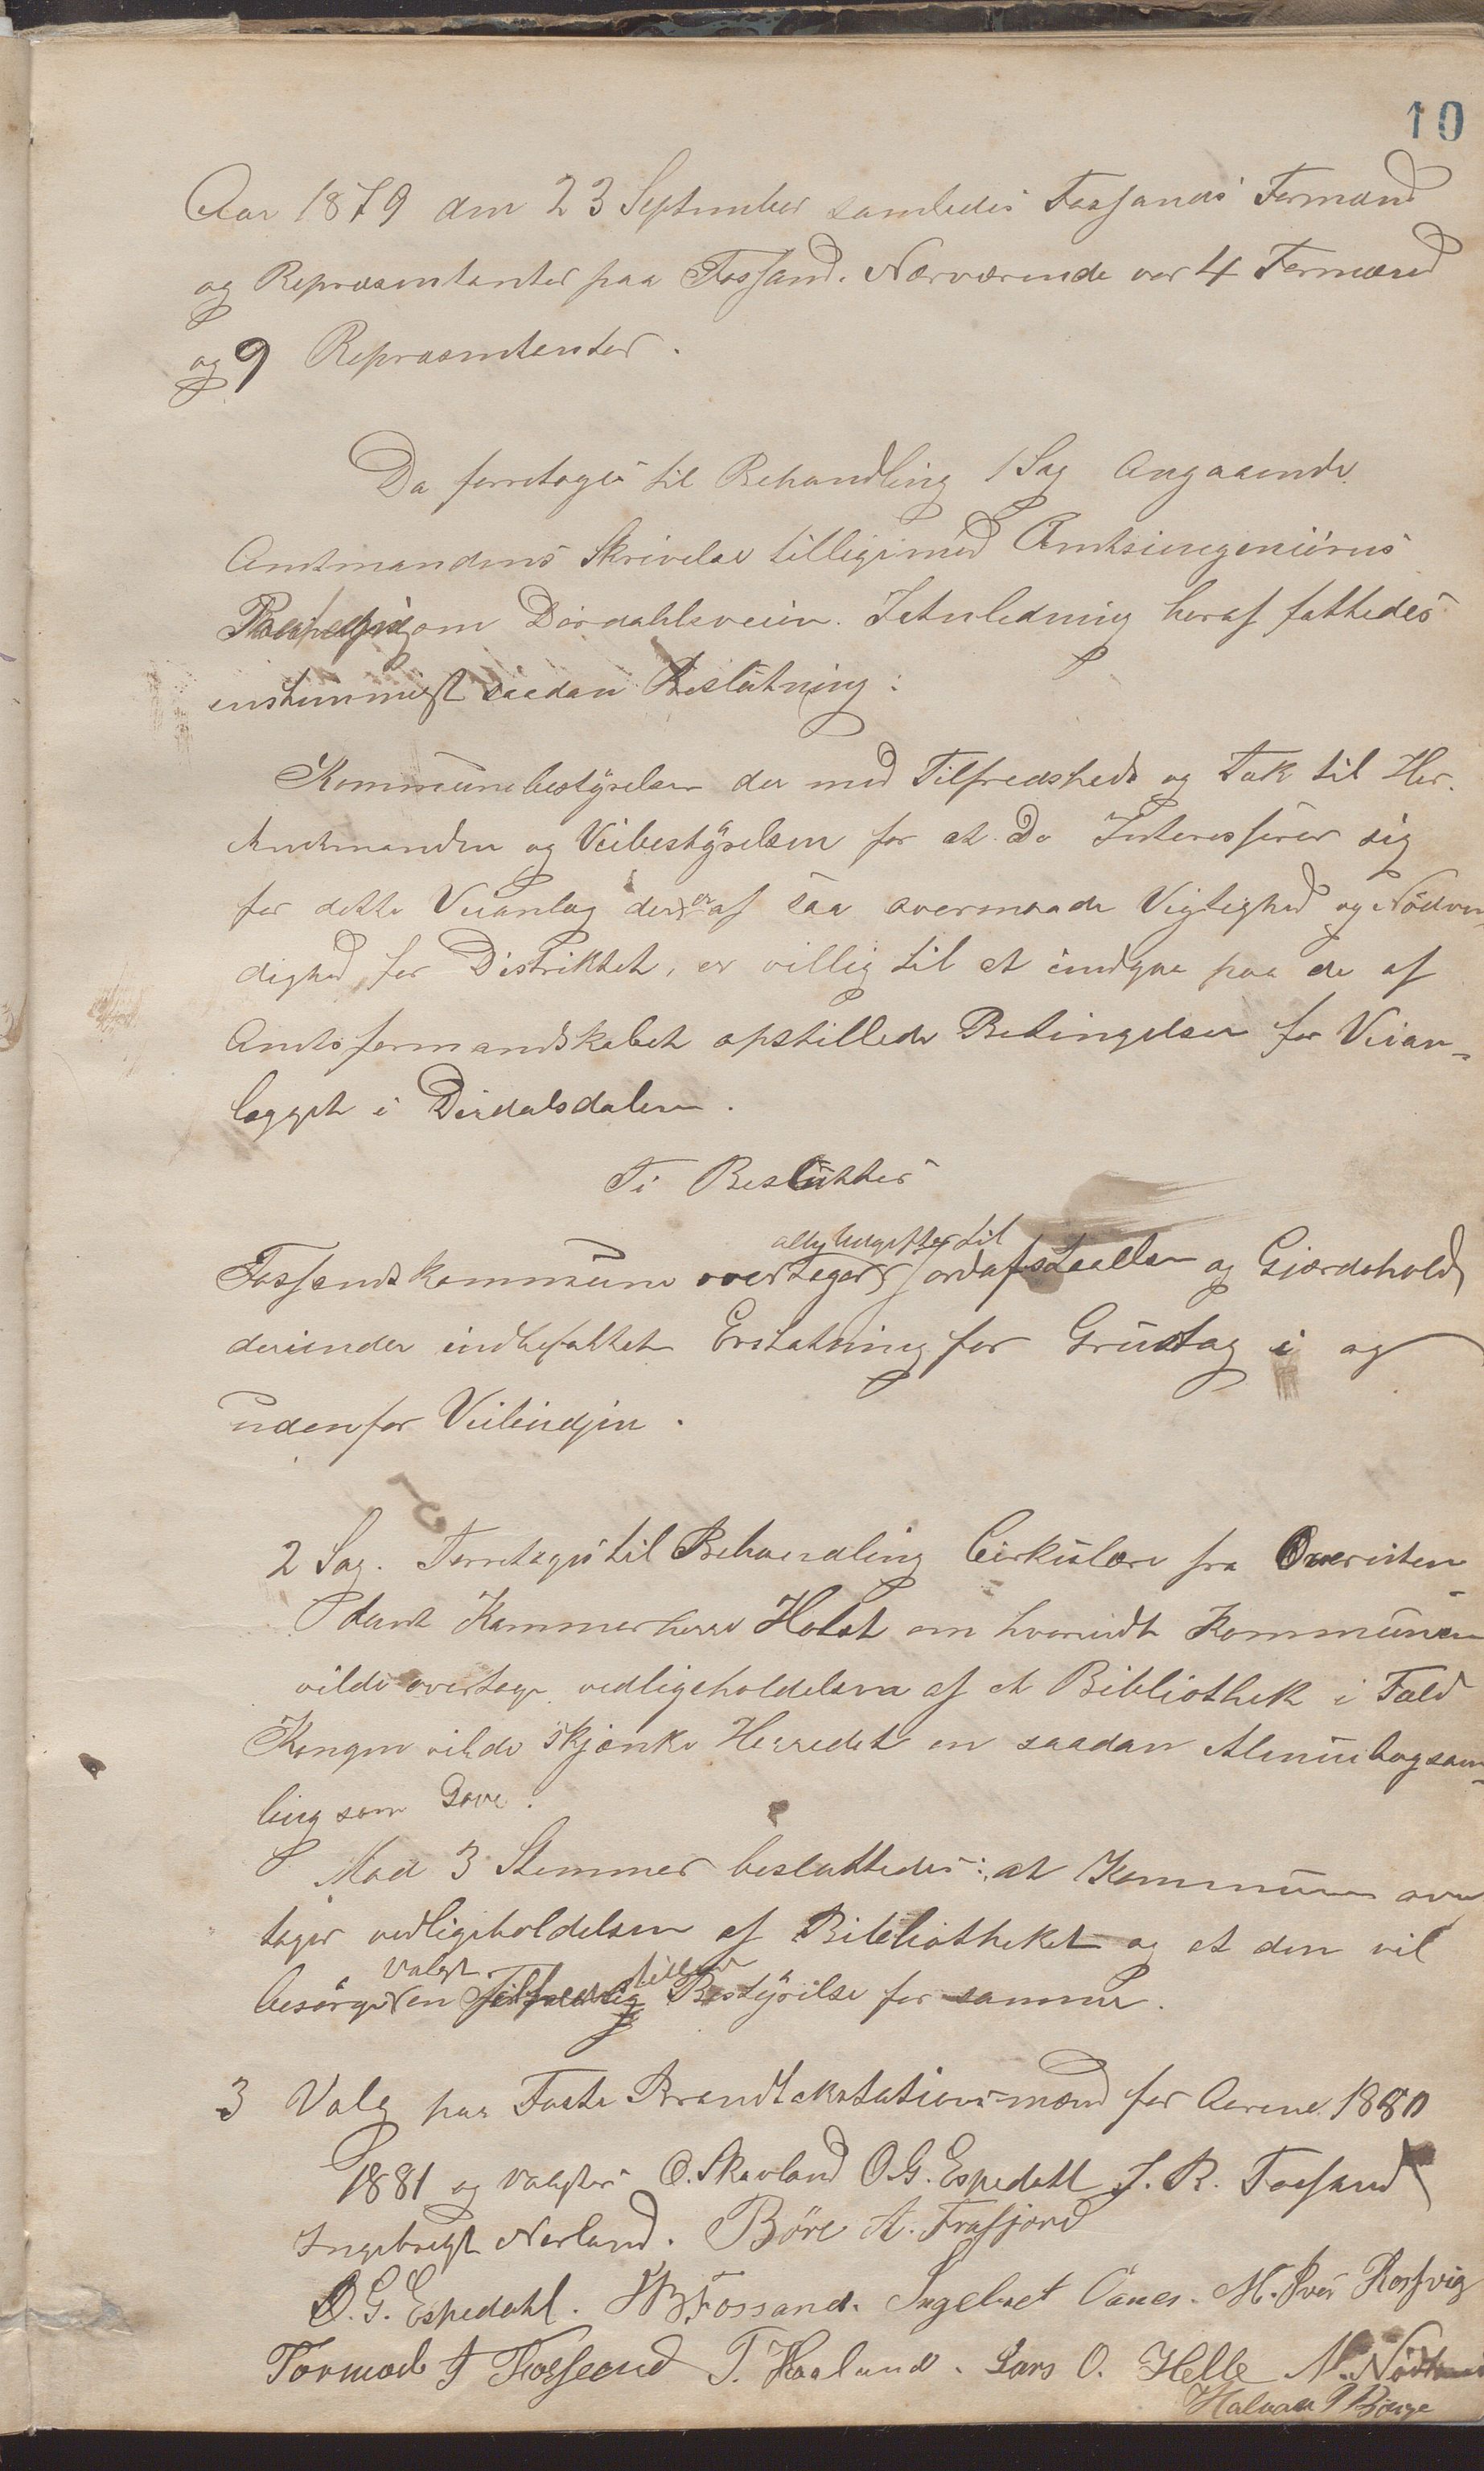 10
Aar 1879 den 23 September samledes Fossands Formænd
og Repræsentanter paa Fossand. Nærværende var 4 Formænd
og 9 Repræsentanter.
Da forretoges til Behandling 1 Sag Angaaende
Amtmandens Skrivelse tilligemed Amtsingeniörens
om Dirdahlsveien. I Anledning heraf fattedes
enstemmigst saadan Beslutning:
Kommunebestyrelsen der med Tilfredshed og Tak til Her.
Amtmanden og Veibestyrelsen for at De Interesserer sig
for dette Veianlæg der er af saa overmaade Vigtighed og Nödven-
dighed for Distriktet, er villig til at indgaa paa de af
Amtsformandskabet opstillede Betingelser for Veian-
lægget i Dirdalsdalen.
Ti Besluttes
alle Udgifter til
Fossands kommune overtager Jordafstaaelse og Gjærdehold
derunder indbefattet Erstatning for Grustag i og
udenfor Veilinjen.
2 Sag. Forretoges til Behandling Cirkulære fra Overinten-
dant Kammerherre Holst om hvorvidt Kommunen
vilde overtage vedligeholdelsen af et Bibliothek i Fald
Kongen vilde skjænke Herredet en saadan Almuebogsam-
ling som Gave.
Mod 3 Stemmer besluttedes: at Kommunen over
tager vedligeholdelsen af Bibliotheket og at den vil
valgt
besörge en Bestyrelse for samme.
3 Valg paa Faste Brandtakstationsmænd for Aarene 1880
1881 og valgtes O. Skavland O. G. Espedahl J. R. Fossand
Ingebregt Nerland. Böre A. Frafjord
O. G. Espedahl. Fossand. Ingebret Oanes. M. Iver Rossvig
Tormod T Fossand T. Haaland. Lars O. Helle M. Nödland
Halvar Bjørge